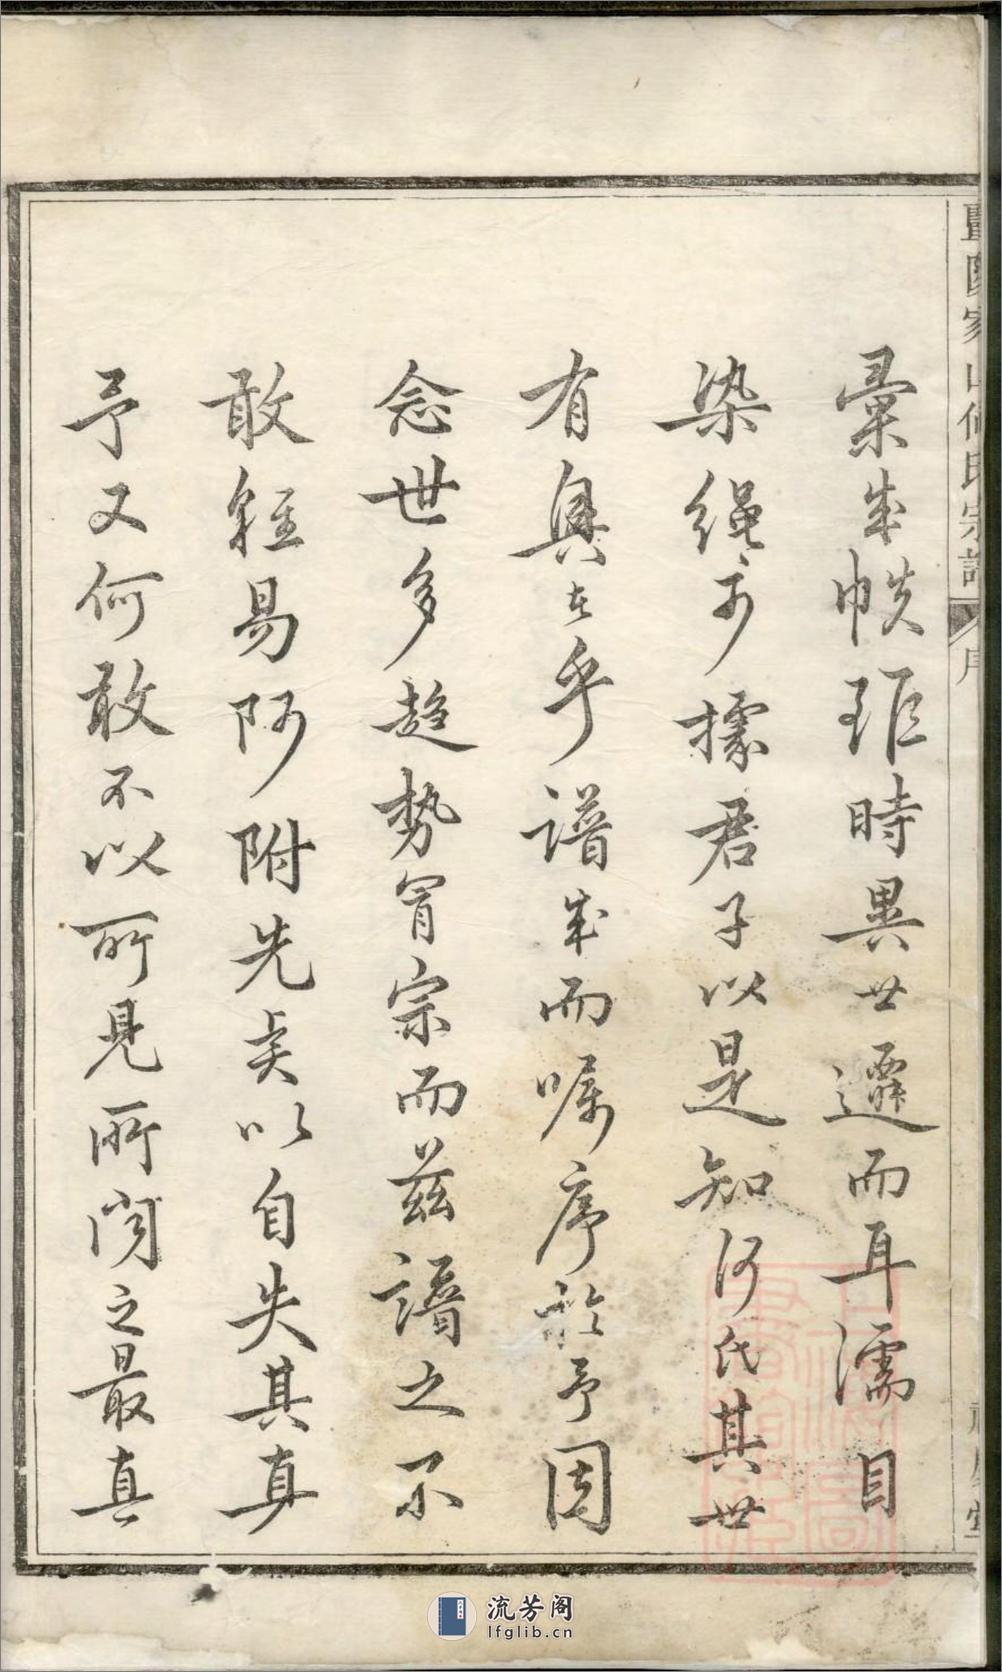 彙成帙距時異世遷而耳濡目
染繩可據君子以是知何氏其世
有興乎譜成而囑序於予因
念世多趨勢冒宗而茲譜之不
敢輕易阿附先矣以自失其真
予又何敢不以所見所聞之最真
家山何氏宗譜
序
流芳阁
lfglib.cn